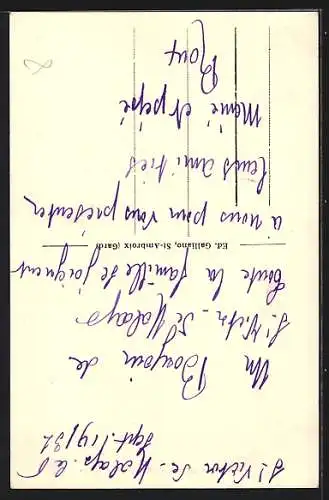 St Victor de - Malcap. le
Sept. 1932
Un Bonjour de
St Victor - de Malcap
toute la famille se joignent
Ed. Galliano, St-Ambroix (Gard)
à nous pour vous présenter
leurs amitiés
Mémé et pépé
Roux